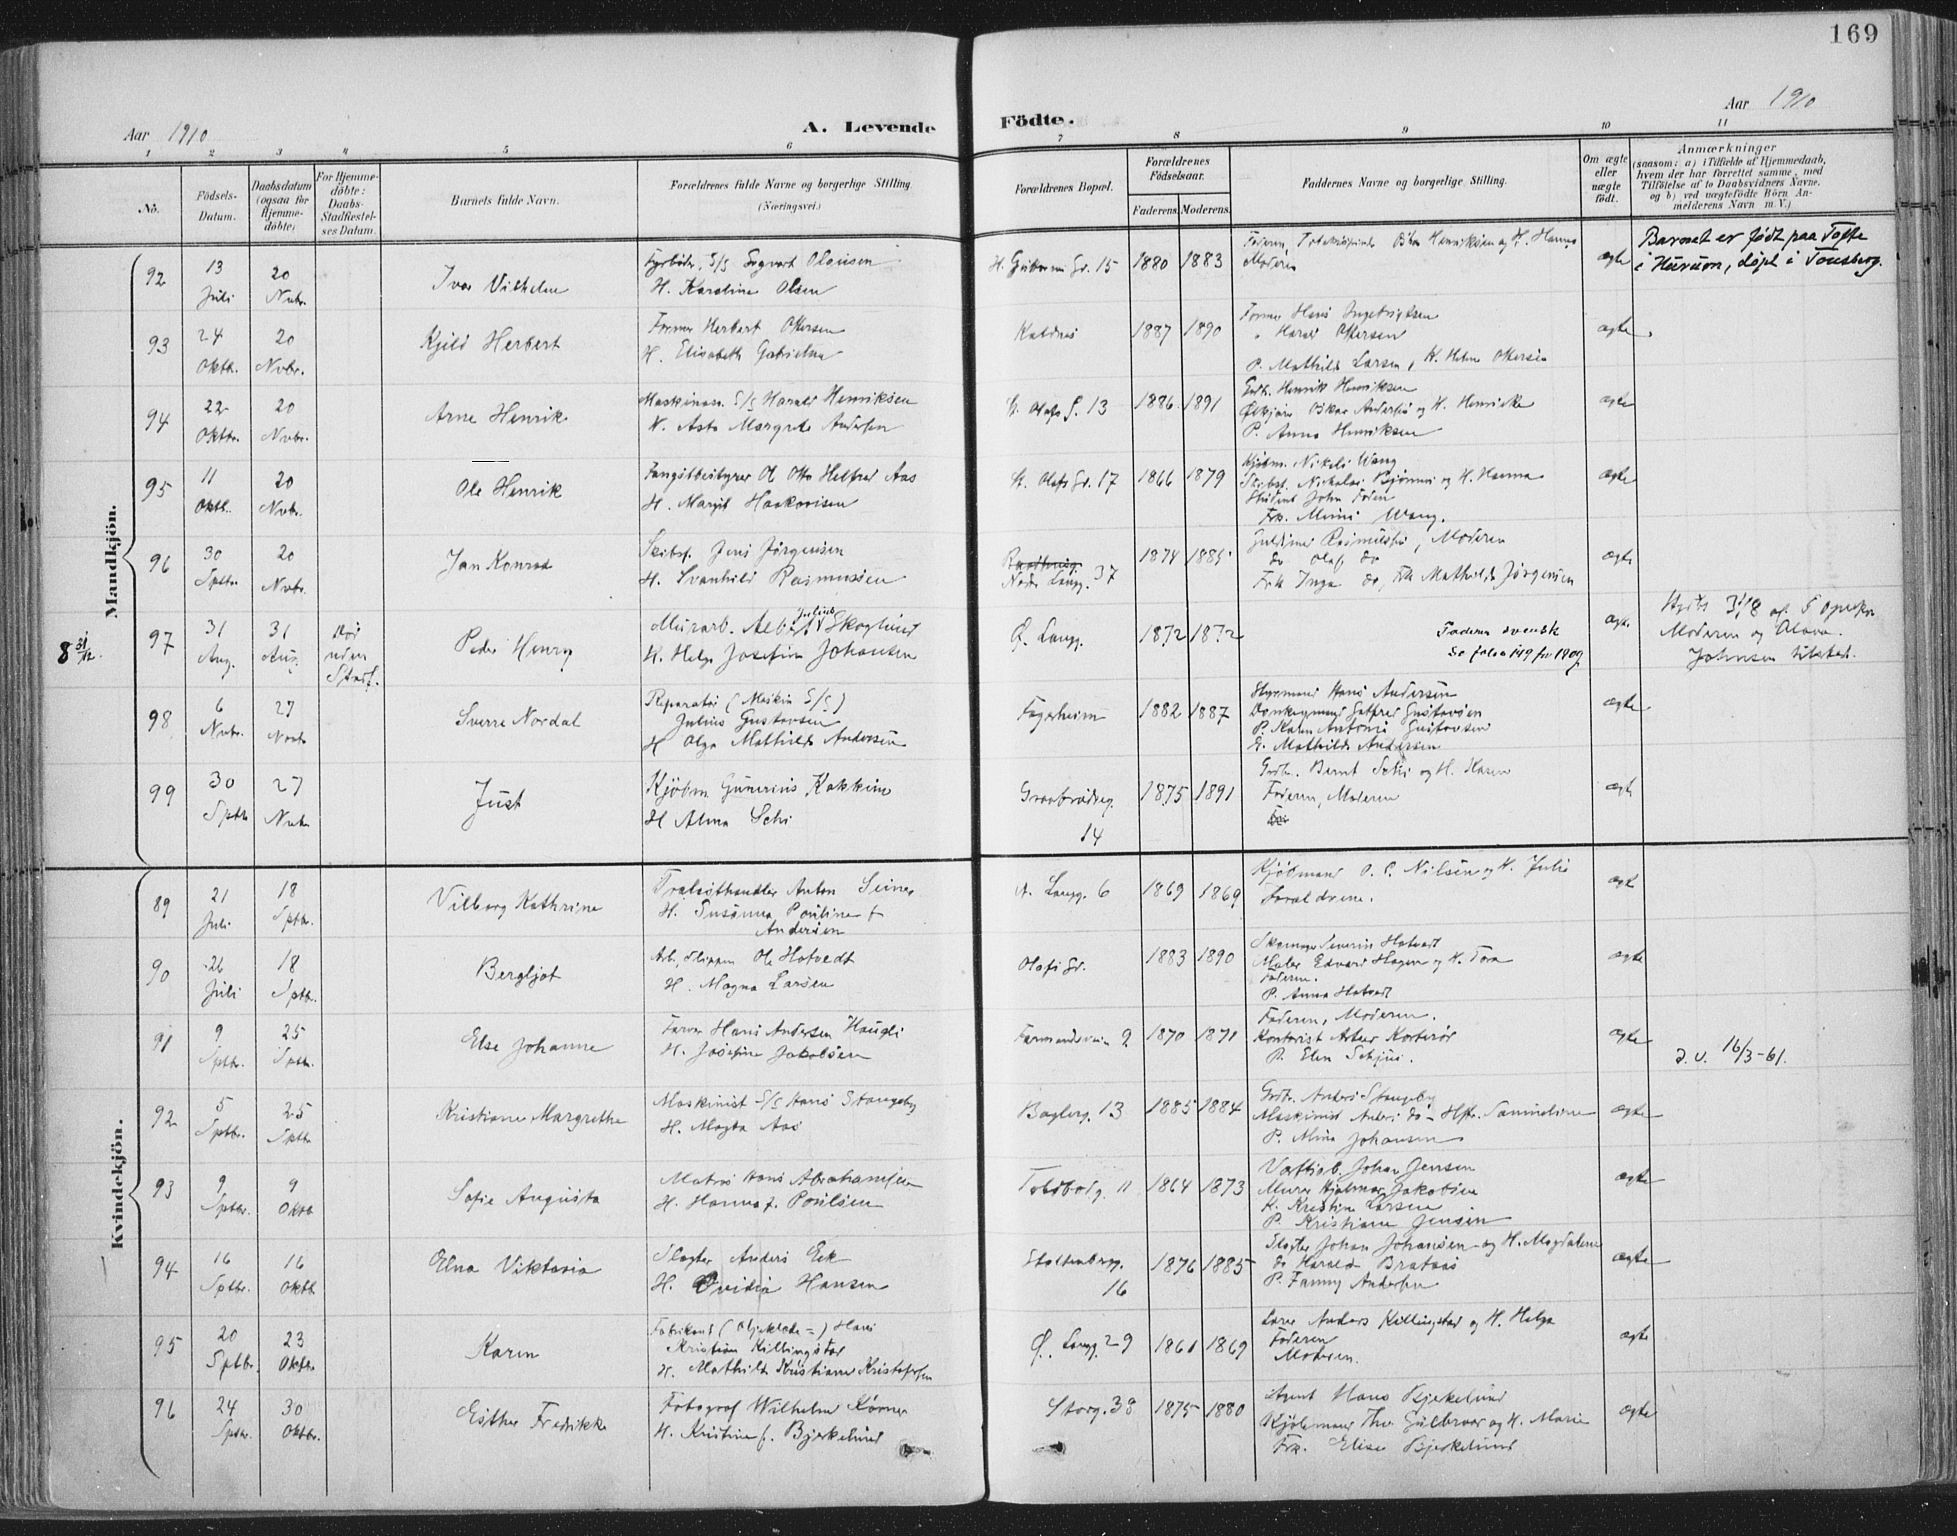 169
Aar 1910
A. Levende
Födte.
Aar 1910
1 2 3 4 5 6 7 8 9 10 11
No.
Födsels-Datum.
Daabsdatum (ogsaa for Hjemme-döbte)
For Hjemme-döbte: Daabs-Stadfæstel-ses Datum.
Barnets fulde Navn.
Forældrenes fulde Navne og borgerlige Stilling.
(Næringsvei.)
Forældrenes Bopæl.
Forældrenes Fødselsaar.
Faderens. Moderens.
Faddernes Navne og borgerlige Stilling.
Om ægte eller uægte født.
Anmærkninger
(saasom: a) i Tilfælde af Hjemmedaab, hvem der har forrettet samme, med Tilföielse af to Daabsvidners Navne, og b) ved uægtefödte Börn An-melderens Navn m. V.)
Mandkjön.
92 13 Juli 20 Nvbr. Ivar Vilhelm
Fyrbøter, S/S Sigvart Olausen
H. Karoline Olsen
15 1880 1883
Moderen
ægte
Barnet er født paa Tofte
i Hurum, døpt i Tønsberg.
93 24 Oktbr. 20 Nvbr. Kjeld Herbert
Former Herbert Ottersen
H. Elisabeth Gabrielsen
Kaldnes 1887 1890
Former Hans Ingebrigtsen
" Harald Ottersen
P. Mathilde Larsen, H. Helene Ottersen
ægte
94 22 Oktbr. 20 Nvbr. Arne Henrik
Maskinass. S/S Harald Henriksen
H. Asta Margrete Andersen
St. Olafs G. 13 1886 1891
Gbr. Henrik Henriksen
Oskar Andersen og H. Henrikke
P. Anna Henriksen
ægte
95 11 Oktbr. 20 Nvbr. Ole Henrik
Fangstbestyrer Ole Otto Helfred Aas
H. Margit Haakonsen
St. Olafs Gr. 17 1866 1879
Kjøbm. Nikolai Wang
Skibsf. Nickolai Bjønnes og H. Hanna
Student John Foien
Frk. Mimi Wang.
ægte
96 30 Sptbr. 20 Nvbr. Jan Konrad
Skibsf. Jens Jørgensen
H. Svanhild Rasmussen
Nedre Langg. 37 1874 1885
Guldsmed Rasmussen, Moderen
do Olaf do
Frk Inga do, Frk Mathilde Jørgensen
ægte
8 31/12.
97 31 Aug. 31 Aug. Død uden Stadf. Peder Henry
Murarb. Albert Julius Skoglund
H. Helga Josefine Johansen
Ø. Langg. 1872 1872
Faderen svensk
Se folio 149 for 1909
ægte
Hjdb. 31/8 af
Moderen og Olava
Johnsen tilsted.
98 6 Nvbr. 27 Novb. Sverre Nordal
Reparatør (Maskin S/S)
Julius Gustavsen
H Olga Mathilde Andersen
Fagerheim 1882 1887
Styrmand Hans Andersen
Donkeymand Gotfred Gustavsen
P. Karen Antonie Gustavsen
E. Mathilde Andersen
ægte
99 30 Sptbr 27 Nvbr Just
Kjöbm. Gunerius Kokkim
H Alma Schi
Graabrødreg. 14 1875 1891
Gbr. Bernt Schi og H. Karen
Faderen, Moderen
ægte
Kvindekjön.
89 21 Juli 18 Sptbr. Vilborg Kathrine
Trælasthandler Anton Seiner
H. Susanna Pouline f.
Andersen
N. Langg. 6 1869 1869
Kjøbmand O. C. Nilsen og H. Julie
Forældrene.
ægte
90 26 Juli 18 Sptbr. Bergljot
Arb. Slippen Ole Hotvedt
H. Magna Larsen
Olafs Gr. 1883 1890
Skomager Severin Hotvedt
Maler Edvard Hagen og H. Tora
Faderen.
P. Anna Hotvedt
ægte
91 9 Sptbr. 25 Sptbr. Else Johanne
Farver Hans Andersen Haugli
H. Josefine Jakobsen
Farmandsveien 2 1870 1871
Faderen, Moderen.
Kontorist Artur Korterød
P. Elen Schjui.
ægte
d.v. 16/3-61.
92 5 Sptbr. 25 Sptbr Kristiane Margrethe
Maskinist S/S Hans Stangeby
H. Magda Aas
Baglerg. 13 1885 1884
Gbr. Anders Stangeby
Maskinist Anders do - Hstr. Samueline
P. Mina Johansen
ægte
93 9 Sptbr. 9 Oktb Sofie Augusta
Matros Hans Abrahamsen
H. Hanna f. Poulsen
Toldbodg. 11 1864 1873
Værftsarb. Johan Jensen
Murer Hjalmar Jakobsen
H. Kristine Larsen
P. Kristiane Jensen
ægte
94 16 Sptbr. 16 Oktb Elna Viktoria
Slagter Anders Eek
H. Ovidia Hansen
Stoltenbergg. 16 1876 1885
Slagter Johan Johansen og H. Magdalene
do Harald Brataas
P. Fanny Andersen
ægte
95 20 Sptbr. 23 Oktbr. Karen
Fabrikant (Oljeklæde=) Hans
Kristian Killingstad
H. Mathilde Kristiane Kristofersen
Ø. Langg. 29 1861 1869
Lærer Anders Killingstad og H. Helga
Faderen
Moderen.
ægte
96 24 Sptbr. 30 Oktbr. Esther Fredrikke
Fotograf Wilhelm Körner
H. Kristine f. Bjerkelund
Storg. 38 1875 1880
Agent Hans Bjerkelund
Kjøbmand Thv. Gulbrær og H. Marie
Frk. Elise Bjerkelund
ægte